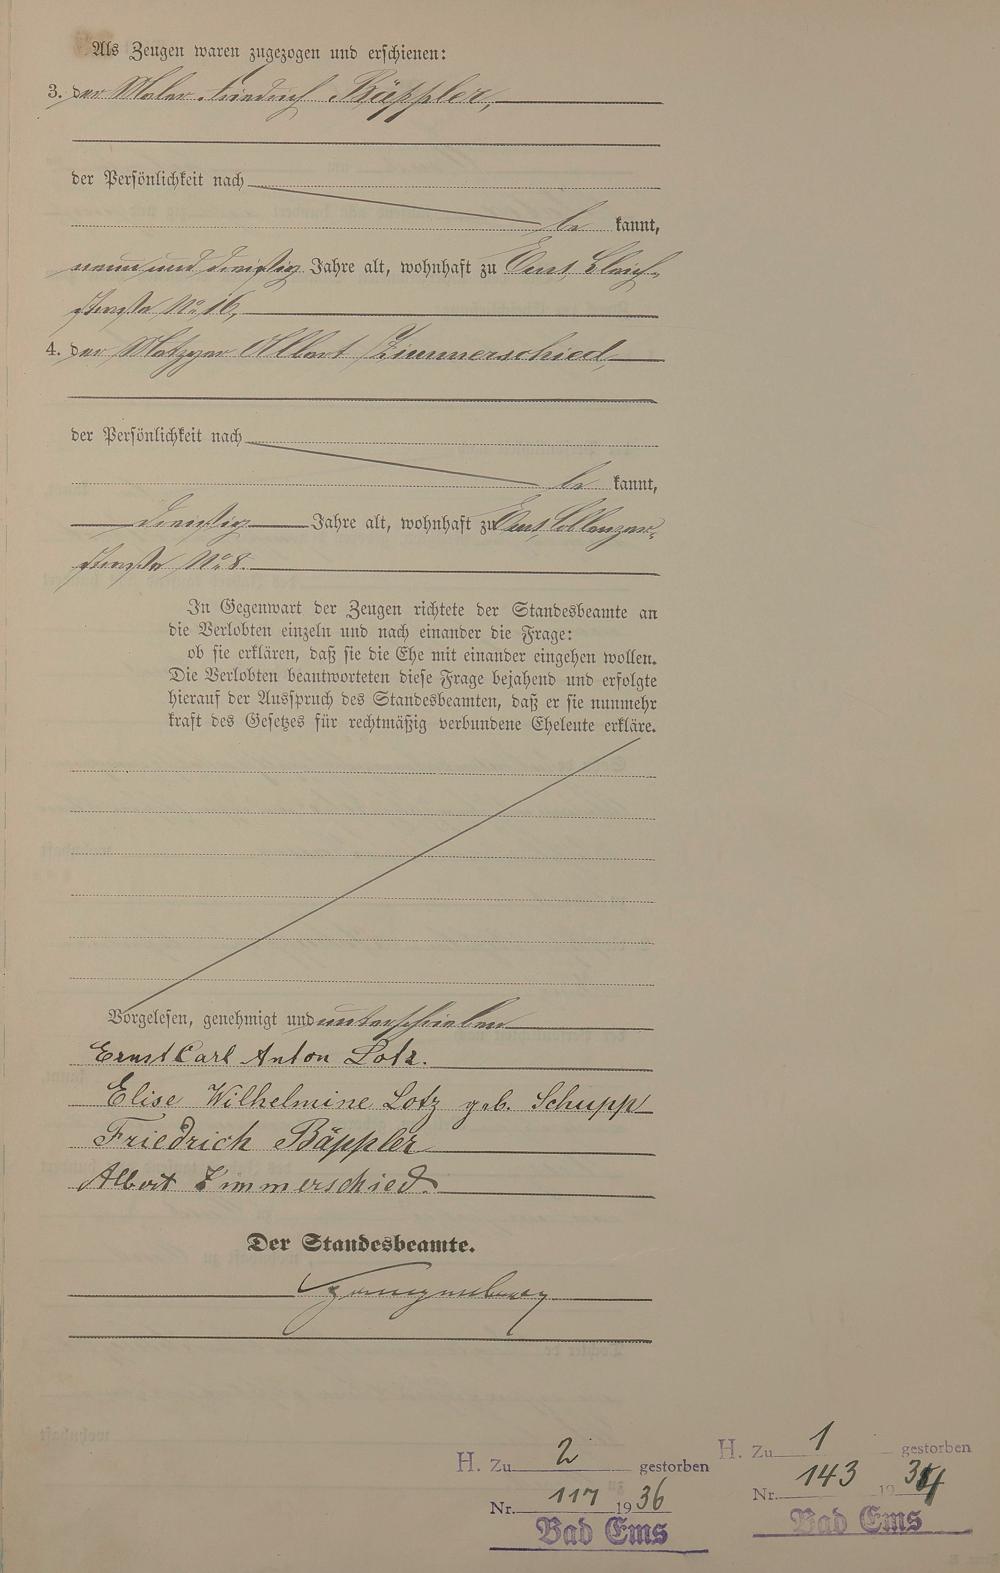 Als Zeugen waren zugezogen und erschienen:
3. der Maler Friedrich Bäppler,
der Persönlichkeit nach
be kannt,
neun und dreißig Jahre alt, wohnhaft zu Ems, Bleich-
straße No. 16,
4. der Metzger Albert Zimmerschied,
der Persönlichkeit nach
be kannt,
dreißig Jahre alt, wohnhaft zu Ems, Coblenzer-
straße No. 8.
In Gegenwart der Zeugen richtete der Standesbeamte an
die Verlobten einzeln und nach einander die Frage:
ob sie erklären, daß sie die Ehe mit einander eingehen wollen.
Die Verlobten beantworteten diese Frage bejahend und erfolgte
hierauf der Ausspruch des Standesbeamten, daß er sie nunmehr
kraft des Gesetzes für rechtmäßig verbundene Eheleute erkläre.
Vorgelesen, genehmigt und unterschrieben
Ernst Carl Anton Lotz.
Elise Wilhelmine Lotz geb. Schupp
Friedrich Bäppler
Albert Zimmerschied.
Der Standesbeamte.
H. Zu 2 gestorben
Nr. 117 1936
Bad Ems
H. Zu 1 gestorben
Nr. 143 19
Bad Ems